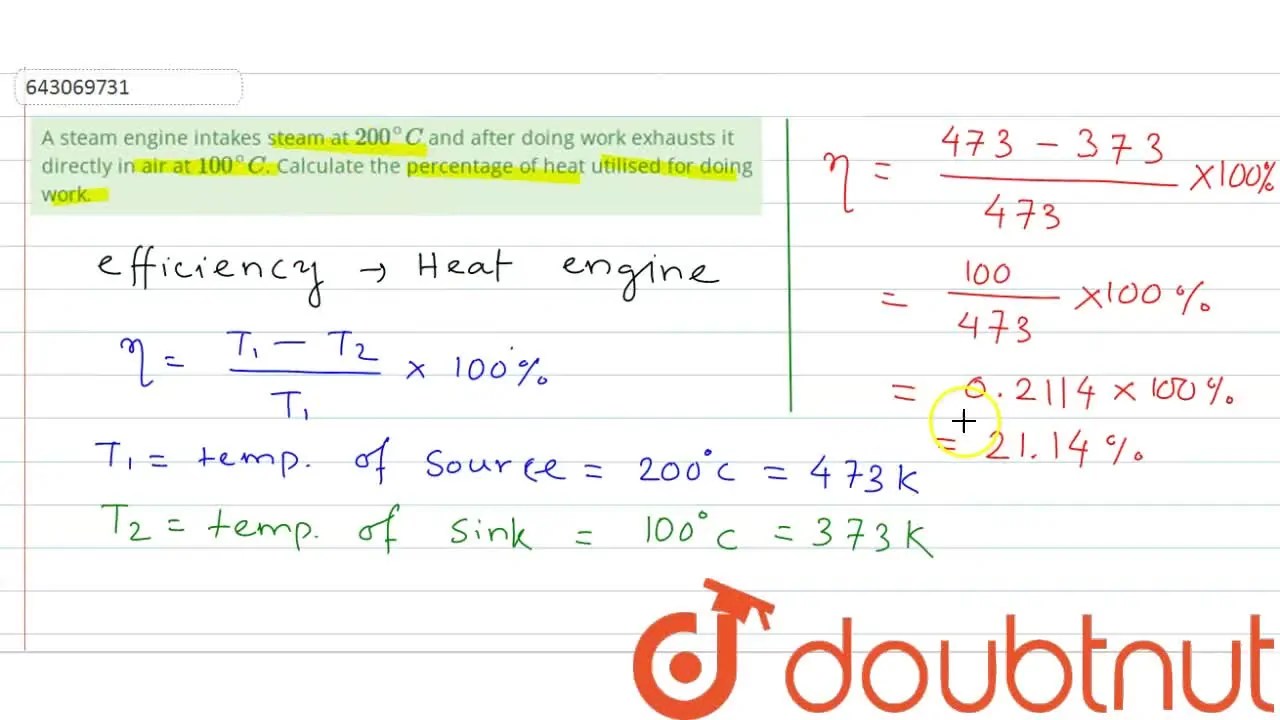 643069731
A steam engine intakes steam at 200°C and after doing work exhausts it
directly in air at 100°C. Calculate the percentage of heat utilised for doing
work.
efficiency → Heat engine
η = (T₁ − T₂) / T₁ × 100%
T₁ = temp. of source = 200°C = 473K
T₂ = temp. of sink = 100°C = 373K
η = (473 − 373) / 473 × 100%
= 100 / 473 × 100%
= 0.2114 × 100%
= 21.14%
doubtnut